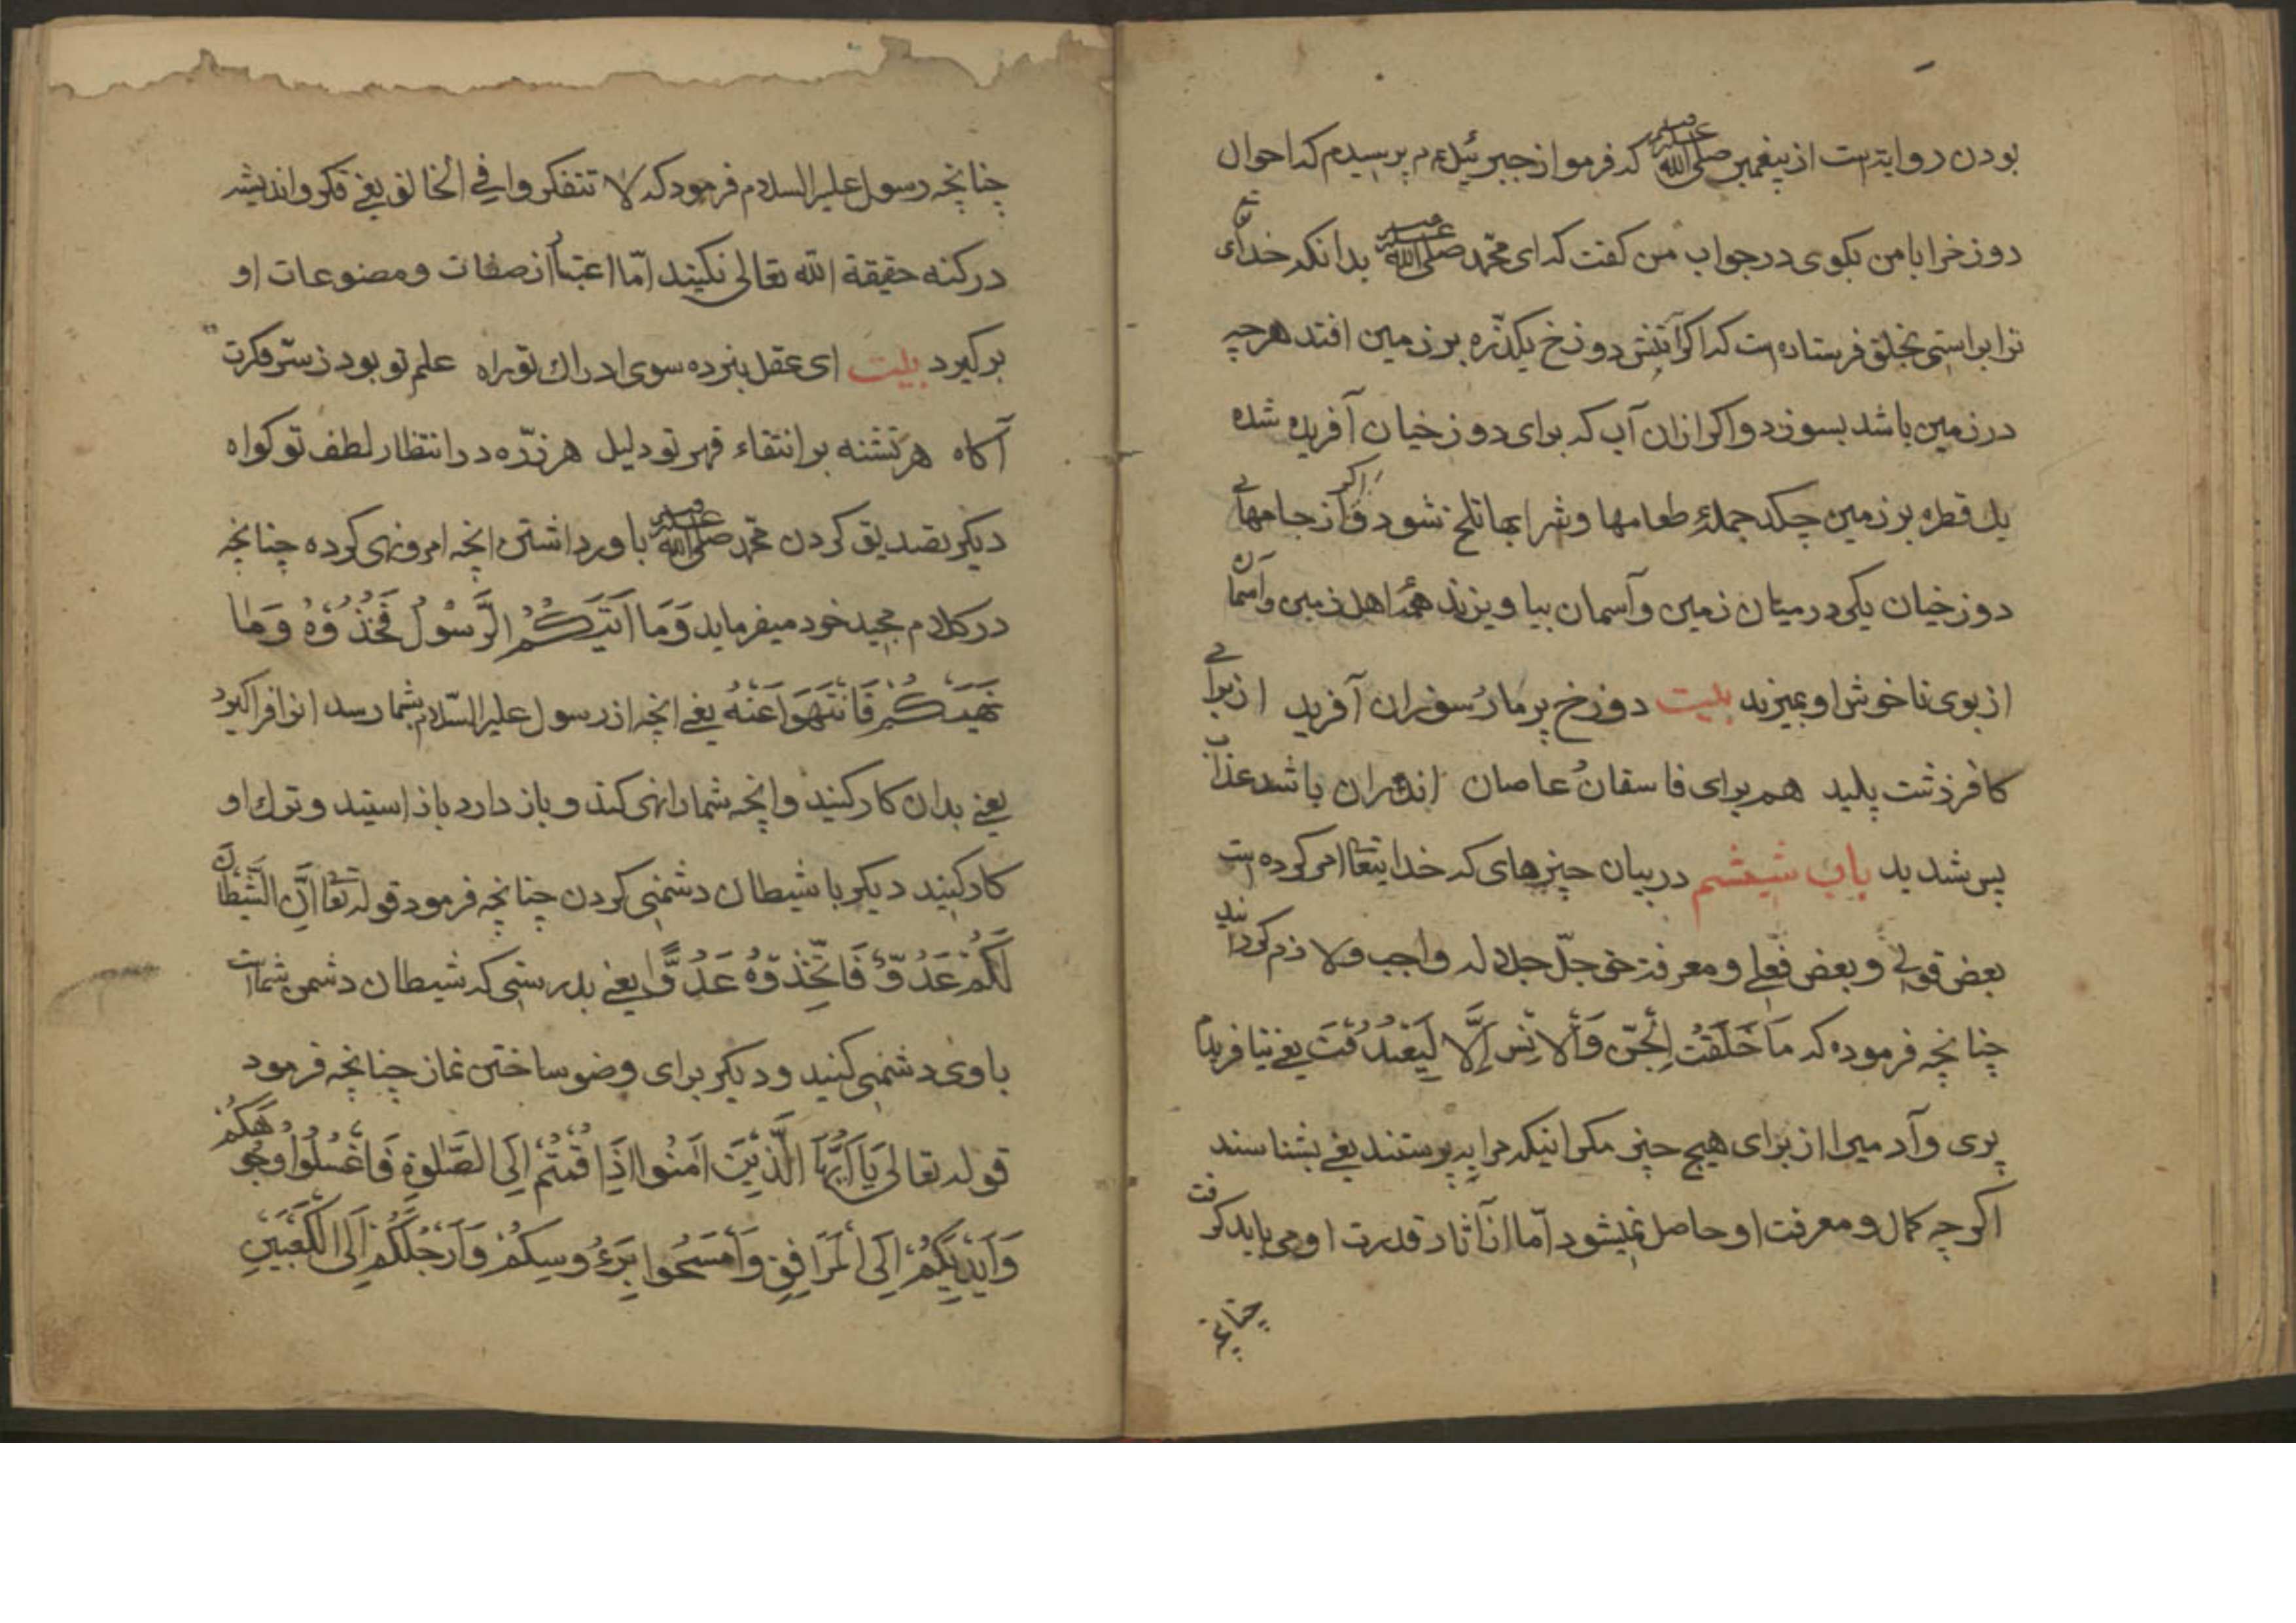 بودن روایتست از پیغمبر صلی الله علیه که فرمو از جبرئیل ءم پرسیدم که احوال
دوزخرا بامن بکوی در جواب من کفت که ای محمّد صلی الله علیه بدانکه خدای
ترا براستی بخلق فرستاده است که اکر آتش دوزخ یکذّره بر زمین افتد هرچه
در زمین باشد بسوزد واکر ازان آب که برای دوزخیان آفریده شده
یك قطره بر زمین چکد جملهٔ طعامها وشرابها تلخ شود واکر از جامهائے
دوزخیان یکی در میان زمین وآسمان بیاویزند همهٔ اهل زمین وآسمان
از بوی ناخوش او بمیرند بیت دوزخ پرمار سوزان آفرید از برائے
کافر زشت پلید هم برای فاسقان عاصان اندران باشد عذاب
بس شدید باب شیشم در بیان چیزهای که خدایتعا امر کرده است
بعض قولے وبعض فعلے ومعرفت حق جلّ جلاله واجب ولازم کردانید
چنانچه فرموده که مَا خَلَقْتُ اْلجِنَّ وَاْلاِنْسَ اِلَّا لِيَعْبُدُوْنَ یعنے نیافریدم
پری وآدمیرا از برای هیچ چیز مکر انیکه مرا بپرستند یعنے بشناسند
اکرچه کمال ومعرفت او حاصل نمیشود امّا از آثار قدرت او می باید کرفت
چنانچه
چنانچه رسول علیه السلام فرمود که لا تتفکروا في الخالق یعنے فکر واندیشه
در کنه حقیقة الله تعالی نکنید امّا اعتبار از صفات ومصنوعات او
بر کیرد بیت ای عقل نبرده سوی ادراك تو راه علم تو بود ز سّر فکرت
آکاه هر تشنه بر انتقاء قهر تو دلیل هر ذرّه در انتظار لطف تو کواه
دیکر تصدیق کردن محمّد صلی الله علیه باور داشتن انچه امر ونهی کرده چنانچه
در کلام مجید خود میفرماید وَمَا اَتَيكُمُ الرَّسُوْلُ فَخُذُوْهُ وَمَا
نَهَيكُمْ فَانْتَهَوَا عَنْهُ یعنے انچه از رسول علیه السّلام بشما رسد انرا فراکیرد
یعنے بدان کار کنید وانچه شمارا نهی کند وباز دارد باز استید وترك او
کار کنید دیکر با شیطان دشمنی کردن چنانچه فرمود قوله تعا اِنَّ الشَّيْطَانَ
لَكُمْ عَدُوٌّ فَاتَّخِذُوْهُ عَدُوًّا یعنے بدرستی که شیطان دشمن شماست
با وی دشمنی کنید ودیکر برای وضو ساختن نماز چنانچه فرمود
قوله تعالی يَا اَيُّهَا الَّذِيْنَ اٰمَنُوا اِذَا قُمْتُمْ اِلَى الصَّلٰوةِ فَاغْسِلُوْا وُجُوهَكُمْ
وَاَيْدِيَكُمْ اِلَى اْلمَرَافِقِ وَاَمْسَحُوا بِرَءُوسِكُمْ وَاَرْجُلَكُمْ اِلَى الْكَعْبَيْنِ